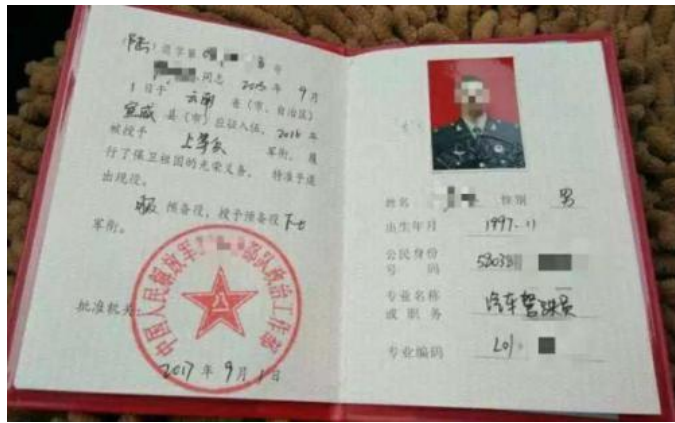 （陆）退字第0 号
同志 2015 年 9 月
1 日于 云南 省（市、自治区）
宣威 县（市）应征入伍，2016 年
被授予 上等兵 军衔。履
行了保卫祖国的光荣义务。特准予退
出现役。
服 预备役，授予预备役 下士
军衔。
批准机关：
中国人民解放军 部队政治工作部
2017 年 9 月 1 日
姓名 性别 男
出生年月 1997.11
公民身份
号 码 530381
专业名称 汽车驾驶员
或 职 务
专业编码